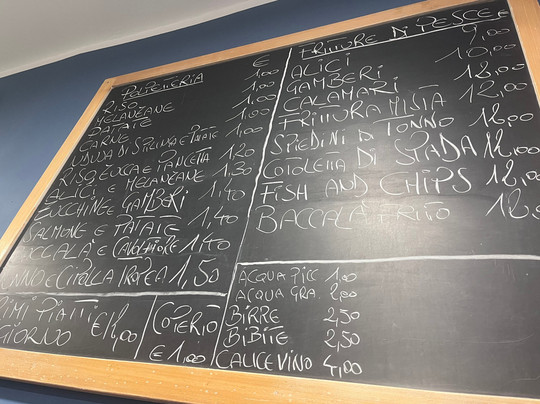 POLPETTERIA €
RISO 1,00
MELANZANE 1,00
PATATE 1,00
CARNE 1,00
NDUJA DI SPILINGA E PATATE 1,00
RISO, ZUCCA E PANCETTA 1,20
ALICI E MELANZANE 1,30
ZUCCHINE E GAMBERI 1,40
SALMONE E PATATE
CCALÀ E CAVOLFIORE 1,40
NNO E CIPOLLA TROPEA 1,50
RIMI PIATTI
GIORNO
COPERTO
€ 1,00
FRITTURE DI PESCE €
ALICI 9,00
GAMBERI 10,00
CALAMARI 12,00
FRITTURA MISTA 12,00
SPIEDINI DI TONNO
COTOLETTA DI SPADA
FISH AND CHIPS 12,00
BACCALÀ FRITTO
ACQUA PICC 1,00
ACQUA GRA. 2,00
BIRRE 2,50
BIBITE 2,50
CALICE VINO 4,00